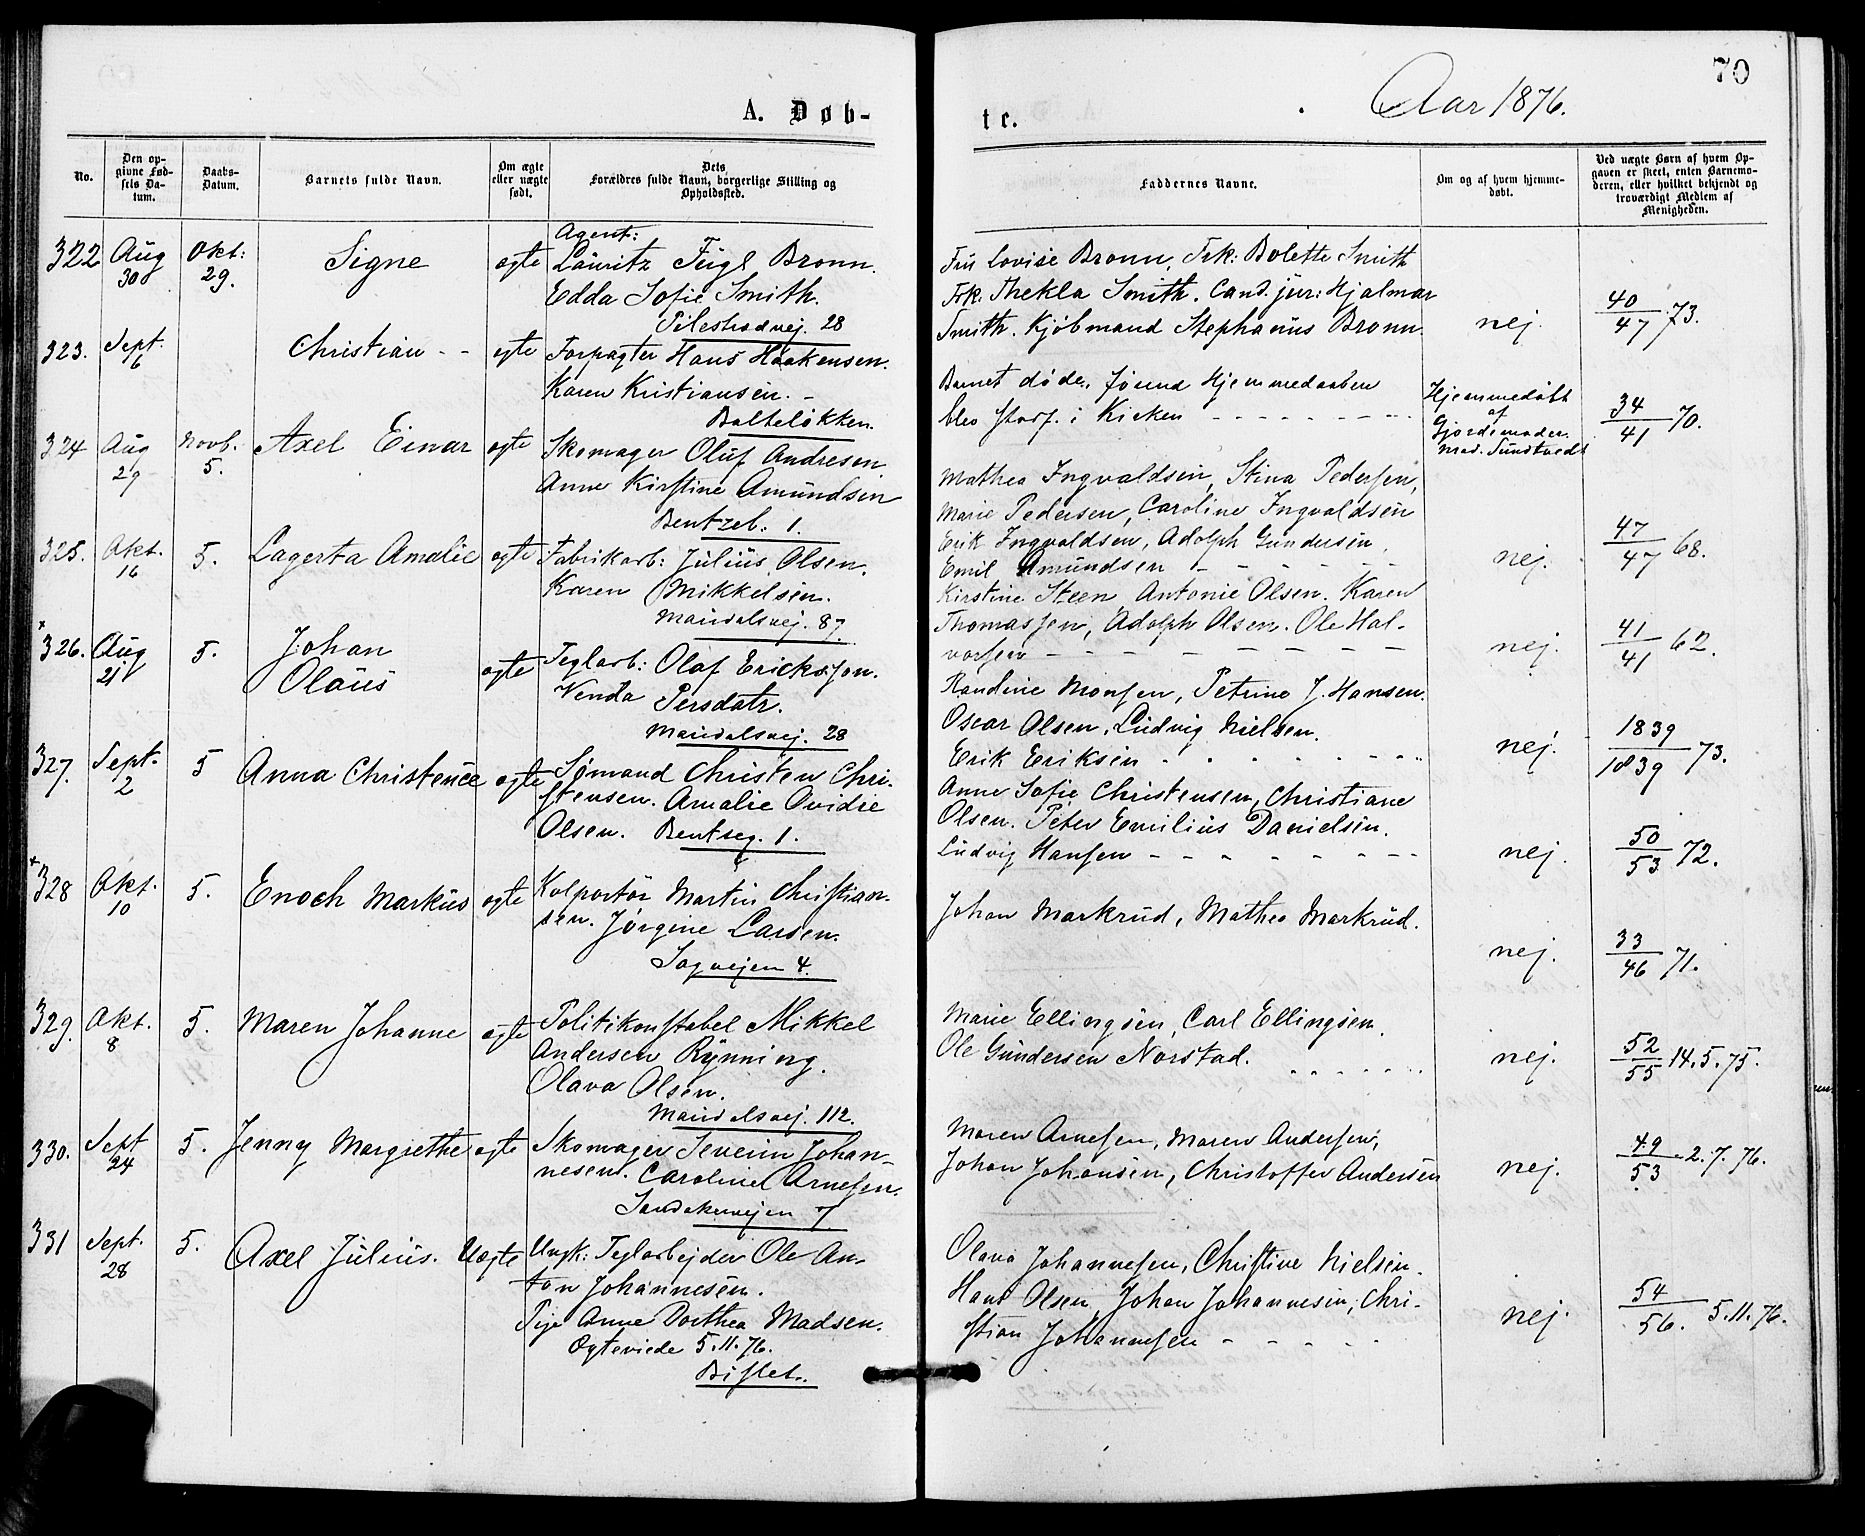 70
Aar 1876.
A. Døb-
te.
No.
Den op-
givne Fød-
sels Da-
tum.
Daabs-
Datum.
Barnets fulde Navn.
Om ægte
eller uægte
født.
Dets
Forældres fulde Navn, borgerlige Stilling og
Opholdssted.
Faddernes Navne.
Om og af hvem hjemme-
døbt.
Ved uægte Børn af hvem Op-
gaven er skeet, enten Barnemo-
deren, eller hvilket bekjendt og
troværdigt Medlem af
Menigheden.
322
Aug
30
Okt:
29.
Signe
egte
Agent:
Lauritz Fugl Bronn.
Edda Sofie Smith.
Pilestrædvej. 28
Fru Lovise Bronn, Frk: Bolette Smith
Frk. Thekla Smith. Cand. jur: Hjalmar
Smith. Kjöbmand Stephanus Bronn.
nej.
40
47 73.
323.
Sept.
6
Christian - -
egte
Forpagter Hans Haakensen.
Karen Kristiansen. -
Balteløkken.
Barnet døde, förend Hjemmedaaben
blev stadf. i Kirken
Hjemmedøbt
af
Gjordemoder
Mad. Sundtvedt
34
41 70.
324
Aug
29
Novb.
5.
Axel Einar
egte
Skomager Oluf Andresen
Anne Kirstine Amundsen
Bentzeb. 1.
Mathea Ingvaldsen, Stina Pedersen,
Marie Pedersen, Caroline Ingvaldsen
Erik Ingvaldsen, Adolph Gundersen,
Emil Amundsen
nej.
47
47 68.
325.
Okt.
16
5.
Lagerta Amalie
egte
Fabrikarb: Julius Olsen.
Karen Mikkelsen.
Maridalsvej. 87
Kirstine Steen Antonie Olsen. Karen
Thomassen, Adolph Olsen. Ole Hal-
vorsen
nej.
41
41 62.
326.
Aug
21
5.
Johan
Olaus
egte
Teglarb: Olaf Ericksson.
Venda Persdatr.
Maridalsvej. 28
Randine Monsen, Petrine J. Hansen.
Oscar Olsen, Ludvig Nielsen.
Erik Eriksen
nej.
1839
1839 73.
327.
Sept.
2
5
Anna Christence
egte
Sømand Christen Chri-
stensen. Amalie Ovidie
Olsen. Bentseg. 1.
Anne Sofie Christensen, Christiane
Olsen. Peter Emilius Danielsen.
Ludvig Hansen
nej.
50
53 72.
328
Okt.
10
5.
Enoch Markus
egte
Kolportör Martin Christian-
sen. Jørgine Larsen.
Sagvejen 4.
Johan Markrud, Mathea Markrud.
nej.
33
46 71.
329.
Okt.
8
5.
Maren Johanne
egte
Politikonstabel Mikkel
Andersen Rynning.
Olava Olsen.
Maridalsvej. 112.
Marie Ellingsen, Carl Ellingsen.
Ole Gundersen Norstad.
nej.
52
55 14.5.75.
330.
Sept
24
5.
Jenny Margrethe
egte
Skomager Severin Johan-
nesen. Caroline Arnesen.
Sandakervejen 7
Maren Arnesen, Maren Andersen,
Johan Johansen, Christoffer Andersen
nej.
49
53 2.7.76.
331
Sept.
28
5.
Axel Julius.
Uegte
Ungk: Teglarbejder Ole An-
ton Johannesen.
Pige Anne Dorthea Madsen.
Egteviede 5.11.76.
Bislet.
Olava Johannesen, Christine Nielsen.
Hans Olsen, Johan Johannesen, Chri-
stian Johannesen
nej.
54
56. 5.11.76.